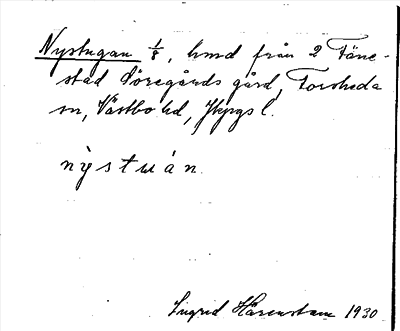 Nystugan 1/8, hmd från 2 Fåne-
stad Söregårds gård, Forsheda
sn, Västbo hd, Jkpgs l.
nỳstuán.
Ingrid Härenstam 1930